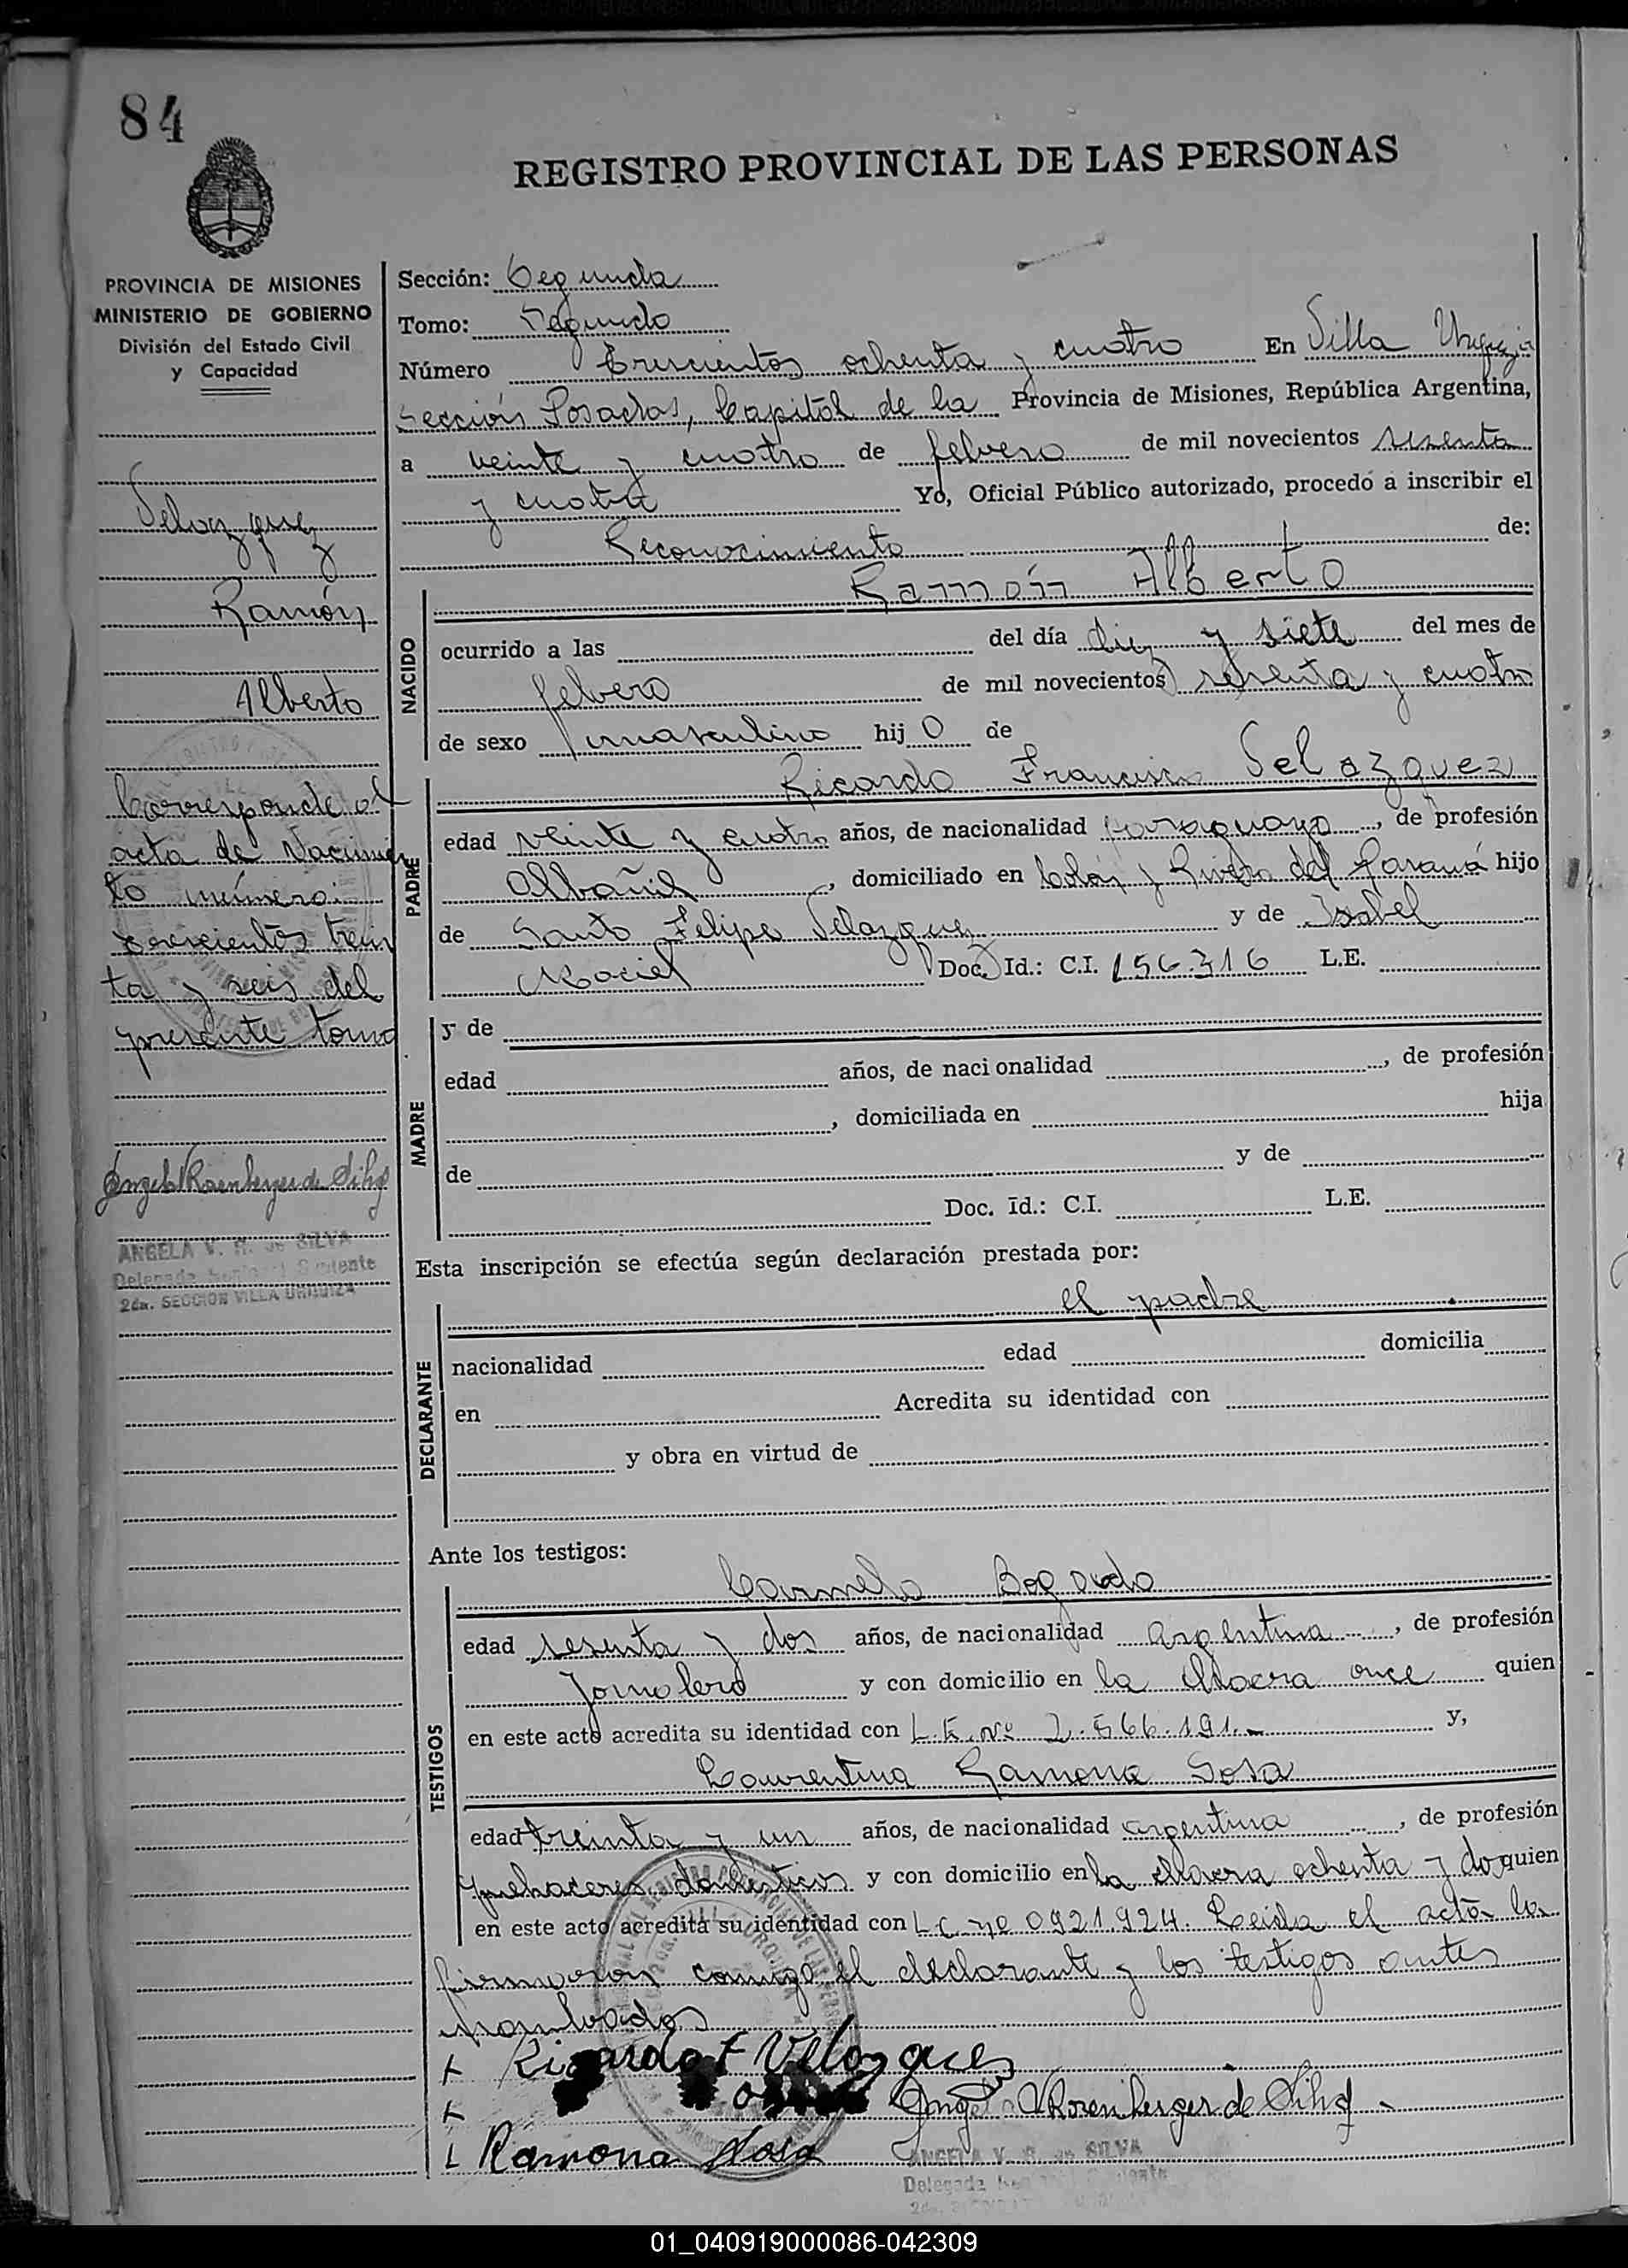 84
REGISTRO PROVINCIAL DE LAS PERSONAS
PROVINCIA DE MISIONES
MINISTERIO DE GOBIERNO
División del Estado Civil
y Capacidad
Velazquez
Ramón
Alberto
Corresponde al
acta de Nacimien
to número
trescientos trein
ta y seis del
presente tomo
ANGELA V. R. de SILVA
Delegada
2da. SECCION VILLA URQUIZA
Sección: Segunda
Tomo: Segundo
Número trescientos ochenta y cuatro En Villa Urquiza
Sección Posadas, Capital de la Provincia de Misiones, República Argentina,
a veinte y cuatro de febrero de mil novecientos sesenta
y cuatro Yo, Oficial Público autorizado, procedo a inscribir el
Reconocimiento de:
Ramón Alberto
NACIDO
ocurrido a las del día diez y siete del mes de
febrero de mil novecientos sesenta y cuatro
de sexo masculino hijo de
Ricardo Francisco Velazquez
PADRE
edad veinte y cuatro años, de nacionalidad paraguayo, de profesión
Albañil, domiciliado en Colón y Rivera del Paraná hijo
de Santo Felipe Velazquez y de Isabel
Maciel Doc. Id.: C.I. 156.316 L.E.
MADRE
y de
edad años, de nacionalidad , de profesión
, domiciliada en hija
de y de
Doc. Id.: C.I. L.E.
Esta inscripción se efectúa según declaración prestada por:
el padre
DECLARANTE
nacionalidad edad domicilia
en Acredita su identidad con
y obra en virtud de
Ante los testigos:
Carmelo Bogado
TESTIGOS
edad sesenta y dos años, de nacionalidad argentina, de profesión
Jornalero y con domicilio en la Chacra once quien
en este acto acredita su identidad con L.E. Nº 2.566.191.- y,
Laurentina Ramona Sosa
edad treinta y un años, de nacionalidad argentina, de profesión
quehaceres domésticos y con domicilio en la chacra ochenta y do quien
en este acto acredita su identidad con L C nº 0921.924. Leida el acta la
firmaron conmigo el declarante y los testigos antes
nombrados
Ricardo F Velazques
Angela V Rosenberger de Silva
Ramona Sosa
ANGELA V. R. de SILVA
Delegada
01_040919000086-042309